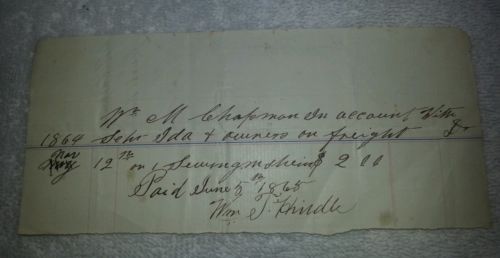 Wm M Chapman In account With
1864 Schr Ida & owners on freight Dr
Mar 12th on 1 Sewingmshine $ 2 00
Paid June 5th 1865
Wm T. Hindle